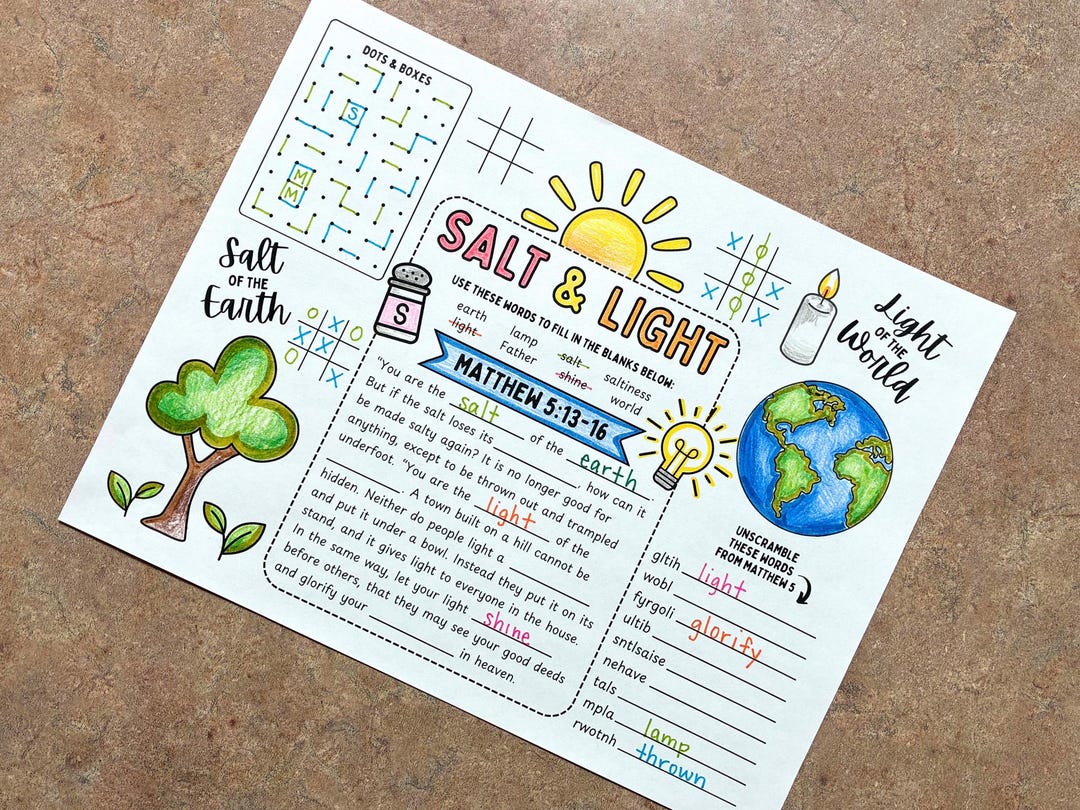 DOTS & BOXES
S
M
M
Salt
OF THE
Earth
O X
X X O
O X
SALT & LIGHT
USE THESE WORDS TO FILL IN THE BLANKS BELOW:
earth lamp salt saltiness
light Father shine world
S
MATTHEW 5:13-16
"You are the salt of the earth.
But if the salt loses its ____, how can it
be made salty again? It is no longer good for
anything, except to be thrown out and trampled
underfoot. "You are the light of the
____. A town built on a hill cannot be
hidden. Neither do people light a ____
and put it under a bowl. Instead they put it on its
stand, and it gives light to everyone in the house.
In the same way, let your light shine
before others, that they may see your good deeds
and glorify your ____ in heaven.
X O
O X
X O X
Light
OF THE
World
UNSCRAMBLE
THESE WORDS
FROM MATTHEW 5
gltih light
wobl
fyrgoli glorify
ultib
sntlsaise
nehave
tals
mpla lamp
rwotnh thrown